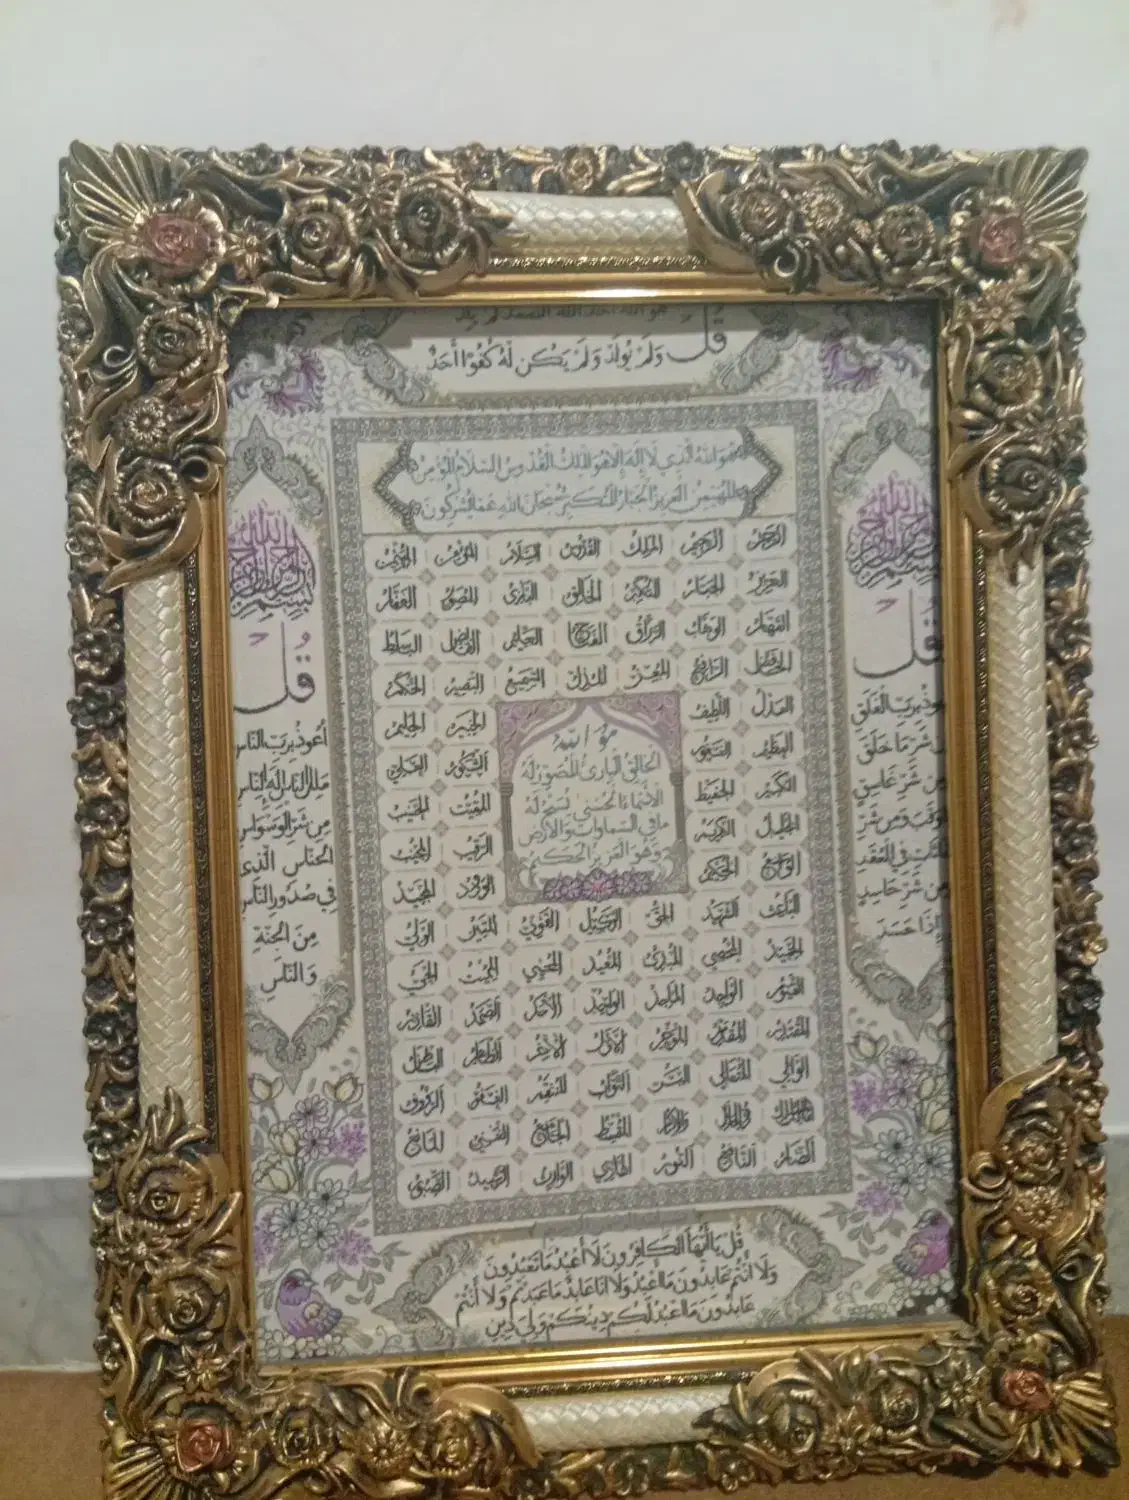 هو الله احد الله الصمد لم يلد
قل
وَلَمْ يُولَدْ وَلَمْ يَكُن لَهُ كُفُوًا أَحَدٌ
هو الله الذي لا إله إلا هو الملك القدوس السلام المؤمن
المهيمن العزيز الجبار المتكبر سبحان الله عما يشركون
الرحمن الرحيم الملك القدوس السلام المؤمن المهيمن
العزيز الجبار المتكبر الخالق الباري المصور الغفار
القهار الوهاب الرزاق الفتاح العليم القابض الباسط
الخافض الرافع المعز المذل السميع البصير الحكم
العدل اللطيف الخبير الحليم
العظيم الغفور الشكور العلي
الكبير الحفيظ المقيت الحسيب
الجليل الكريم الرقيب المجيب
الواسع الحكيم الودود المجيد
هو الله
الخالق البارئ المصور له
الأسماء الحسنى يسبح له
ما في السماوات والأرض
وهو العزيز الحكيم
الباعث الشهيد الحق الوكيل القوي المتين الولي
الحميد المحصي المبدئ المعيد المحيي المميت الحي
القيوم الواجد الماجد الواحد الأحد الصمد القادر
المقتدر المقدم المؤخر الأول الآخر الظاهر الباطن
الوالي المتعالي البر التواب المنتقم العفو الرؤوف
مالك الملك ذو الجلال والإكرام المقسط الجامع الغني المانع
الضار النافع النور الهادي الوارث الرشيد الصبور
بسم الله الرحمن الرحيم
قُل
أعوذ برب الفلق
من شر ما خلق
من شر غاسق
وقب ومن شر
في العقد
من شر حاسد
إذا حسد
بسم الله الرحمن الرحيم
قُل
أعوذ برب الناس
ملك الناس إله الناس
من شر الوسواس
الخناس الذي
في صدور الناس
من الجنة
والناس
قُل يا أيها الكافرون لا أعبد ما تعبدون
ولا أنتم عابدون ما أعبد ولا أنا عابد ما عبدتم ولا أنتم
عابدون ما أعبد لكم دينكم ولي دين